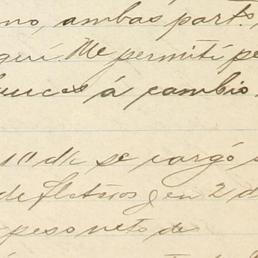 no, ambas parts,
quí. Me permití pe
buces á cambio
10 d/c se cargó
de fletes y en 2 d
peso neto de